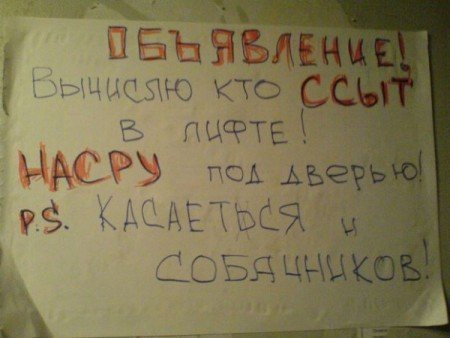 ОБЪЯВЛЕНИЕ!
Вычислю кто ССЫТ
в лифте!
НАСРУ под дверью!
P.S. КАСАЕТЬСЯ и
СОБАЧНИКОВ!